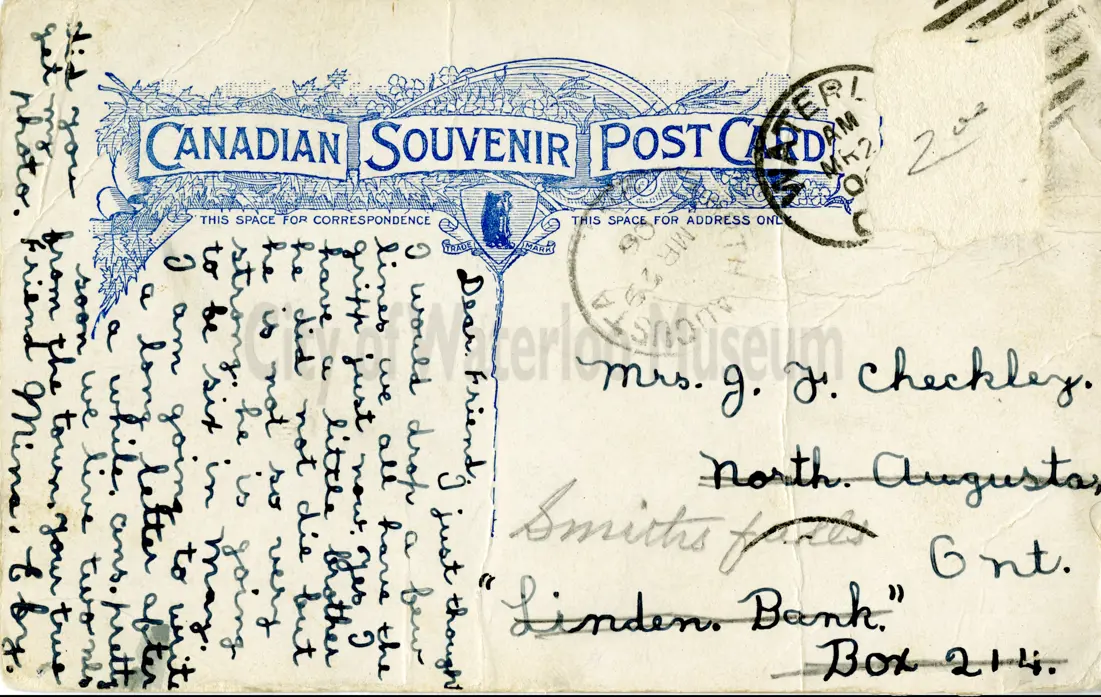 CANADIAN SOUVENIR POST CARD
THIS SPACE FOR CORRESPONDENCE
THIS SPACE FOR ADDRESS ONL
TRADE MARK
WATERL
AM
MR 2
0
TH AUGUSTA
MR 2
06
200
Dear Friend, I just though
I would drop a few
lines we all have the
gripp just now. Yes I
have a little brother
he did not die but
he is not so very
strong, he is going
to be six in May.
I am going to write
a long letter after
a while. ans. pretty
soon we live two
from the town, your true
Friend Mina. Eby.
did you
get my
photo.
Mrs. J. F. Checkley.
North. Augusta,
Smiths falls
Ont.
"Linden. Bank."
Box 214.
City of Waterloo Museum